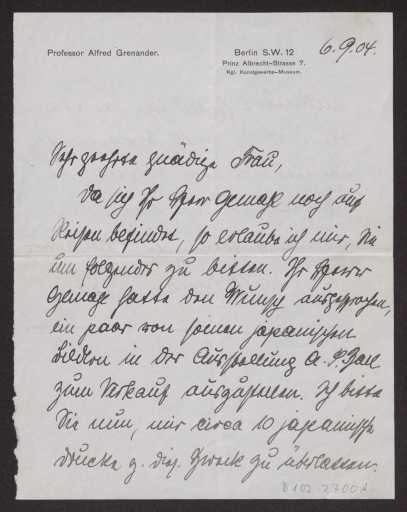 Professor Alfred Grenander.
Berlin S.W. 12
Prinz Albrecht-Strasse 7.
Kgl. Kunstgewerbe-Museum.
6.9.04.
Sehr geehrte gnädige Frau,
Da sich Ihr Herr Gemahl noch auf
Reisen befindet, so erlaube ich mir, Sie
um folgendes zu bitten. Ihr Herr
Gemahl hatte den Wunsch ausgesprochen,
ein paar von seinen japanischen
Bildern in der Ausstellung A. S. Ball
zum Verkauf auszustellen. Ich bitte
Sie nun, mir circa 10 japanische
Drucke z. dies. Zweck zu überlassen.
D 102-2700A